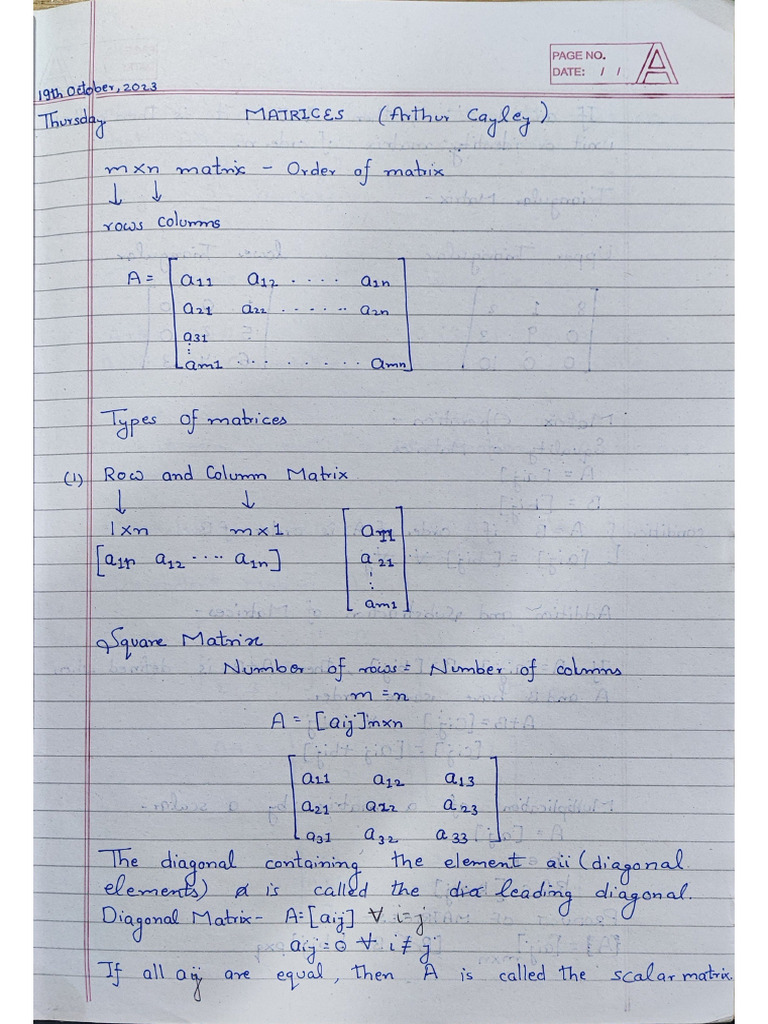 PAGE NO.
DATE: / /
A
19th October, 2023
Thursday.
MATRICES (Arthur Cayley)
m×n matrix - Order of matrix
↓ ↓
rows columns
A = [ a11 a12 ..... a1n
a21 a22 ....... a2n
a31
⋮
am1 ......... amn ]
Types of matrices
(1) Row and Column Matrix
↓ ↓
1×n m×1
[a11 a12 .... a1n]
[ a11
a21
⋮
am1 ]
Square Matrix
Number of rows = Number of colmns
m = n
A = [aij]m×n
[ a11 a12 a13
a21 a22 a23
a31 a32 a33 ]
The diagonal containing the element aii (diagonal
elements) is called the leading diagonal.
Diagonal Matrix- A=[aij] ∀ i=j
aij=0 ∀ i≠j
If all aij are equal, then A is called the scalar matrix.